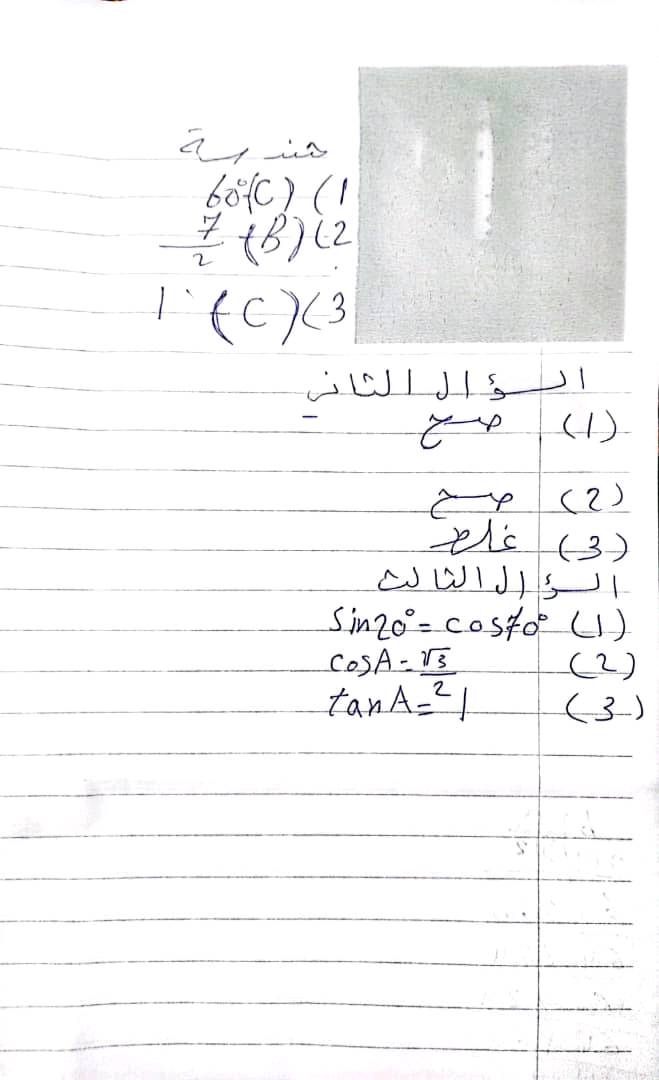 هندسة
1) (C) 60°
2) (B) 7/2
3) (C) 1
السؤال الثاني
(1) صح
(2) صح
(3) غلط
السؤال الثالث
(1) sin20° = cos70°
(2) cosA = √3/2
(3) tanA = 1